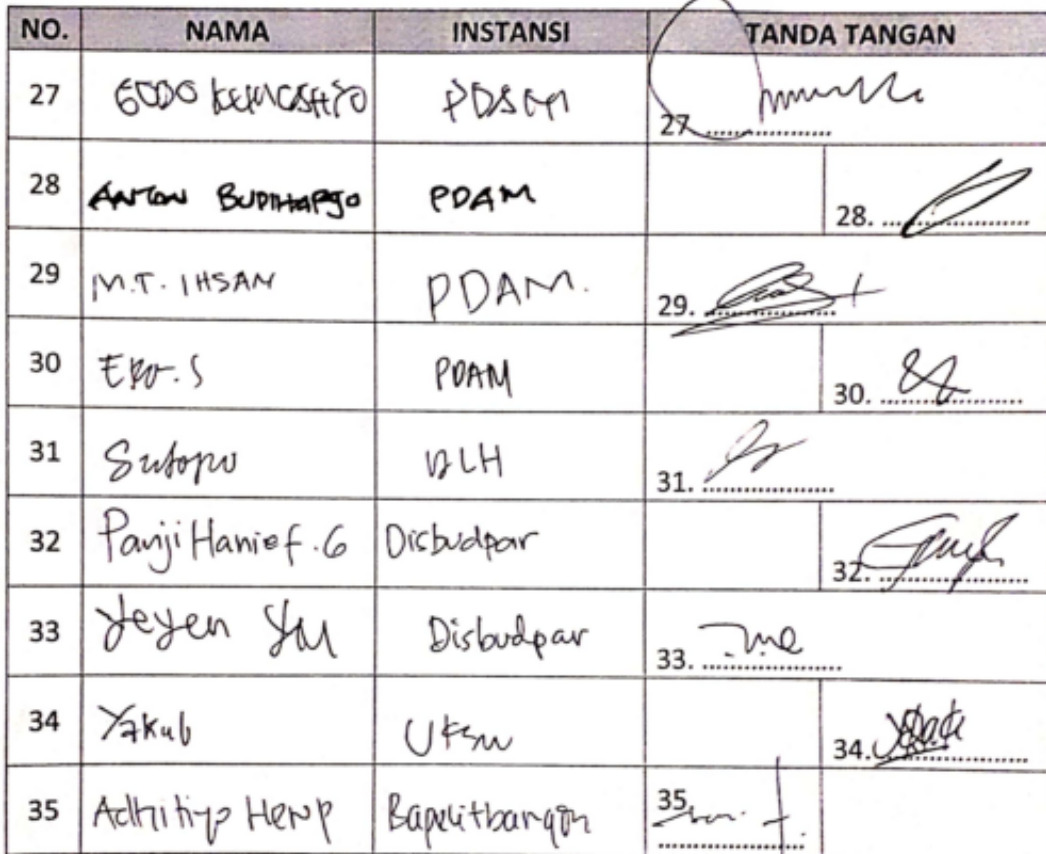 NO. NAMA INSTANSI TANDA TANGAN
27 PDAM 27. ................
28 ANTON BUDIHARJO PDAM 28. ................
29 M.T. IHSAN PDAM. 29. ................
30 EKO.S PDAM 30. ................
31 Sutopo DLH 31. ................
32 Panji Hanief.G Disbudpar 32. ................
33 Yeyen Disbudpar 33. ................
34 Yakub UKSW 34. ................
35 Bapelitbangda 35. ................